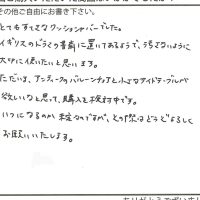 その他ご自由にお書き下さい。
とてもすてきなクッションカバーでした。
イギリスのドラマの書斎に置いてあるようで、汚さないように
大切に使いたいと思います。
ただいま、アンティークのバルーンチェアと小さなサイドテーブルが
欲しいなと思って、購入を検討中です。
いつになるのか 未定なのですが、その際はどうぞよろしく
お願いいたします。